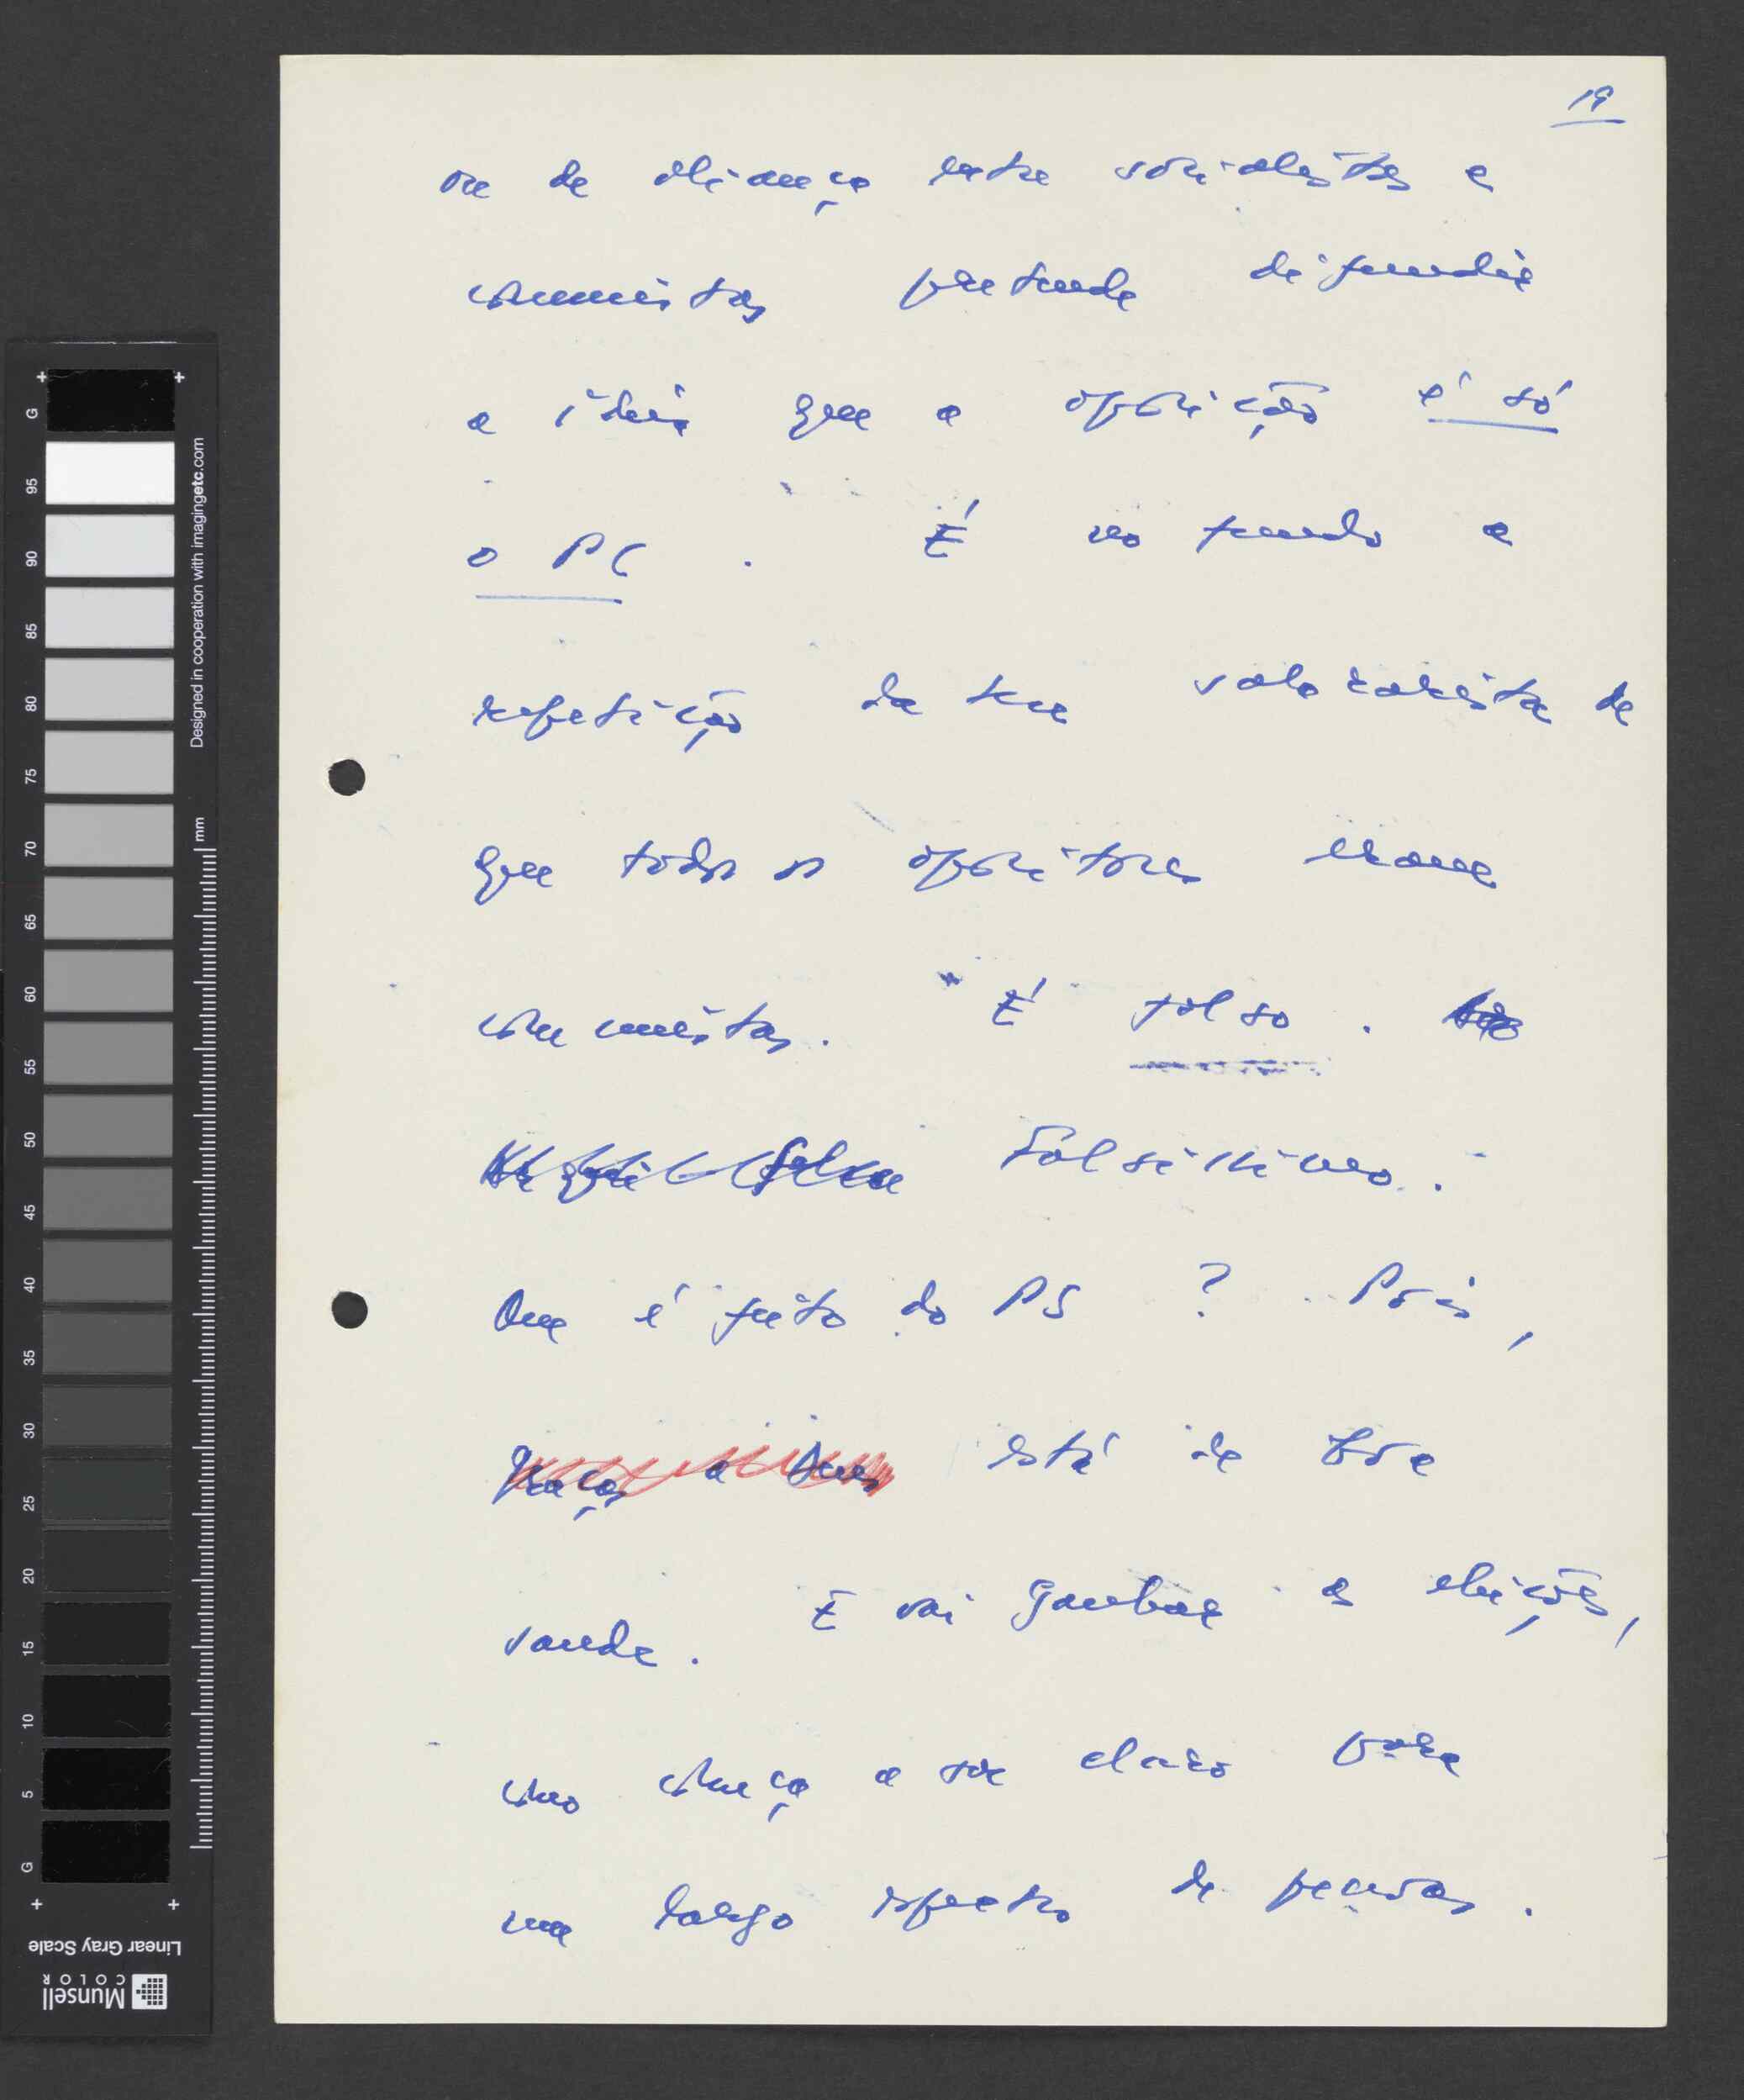 19
ou de aliança entre socialistas e
comunistas pretende difundir
a ideia que a oposição é só
o PC. É no fundo a
repetição da tese salazarista de
que todos os opositores eram
comunistas. É falso.
Falsíssimo.
Que é feito do PS? Pois,
Graças a Deus está de boa
saude. E vai ganhar as eleições,
como começa a ser claro para
um largo espectro de pessoas.
G
95
90
85
80
75
70
65
60
55
50
45
40
35
30
25
20
15
10
5
G
Designed in cooperation with imagingetc.com
mm
Linear Gray Scale
Munsell
COLOR